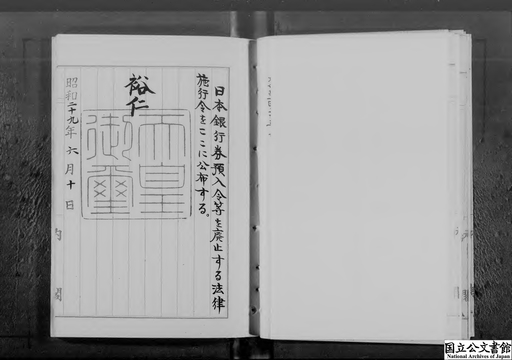 日本銀行券預入令等を廃止する法律
施行令をここに公布する。
裕仁
天皇御璽
昭和二十九年六月十日
内閣
国立公文書館
National Archives of Japan